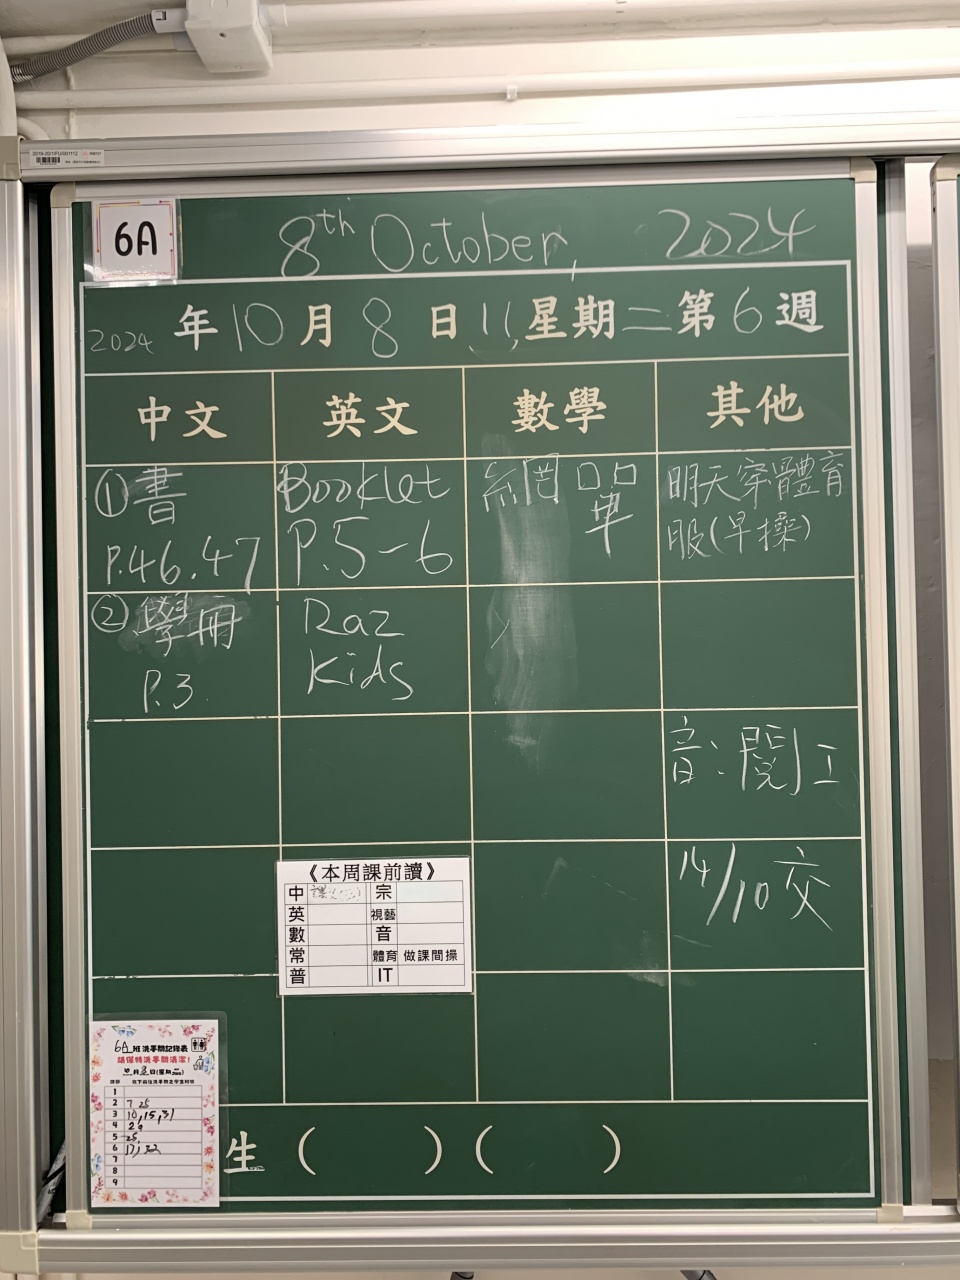 2019-20/1/FU/001112
6A
8th October, 2024
2024 年 10 月 8 日 星期二 第 6 週
中文 英文 數學 其他
①書
P.46.47
Booklet
P.5-6
網單
明天穿體育
服(早操)
②學冊
P.3
Raz
Kids
音:閱工
14/10 交
《本周課前讀》
中 宗
英 視藝
數 音
常 體育 做課間操
普 IT
6A 班洗手間記錄表
請保持洗手間清潔!
10月8日(星期二)
1
2 7 25
3 10,15,31
4
5 25,
6 17, 22
7
8
9
生 ( ) ( )